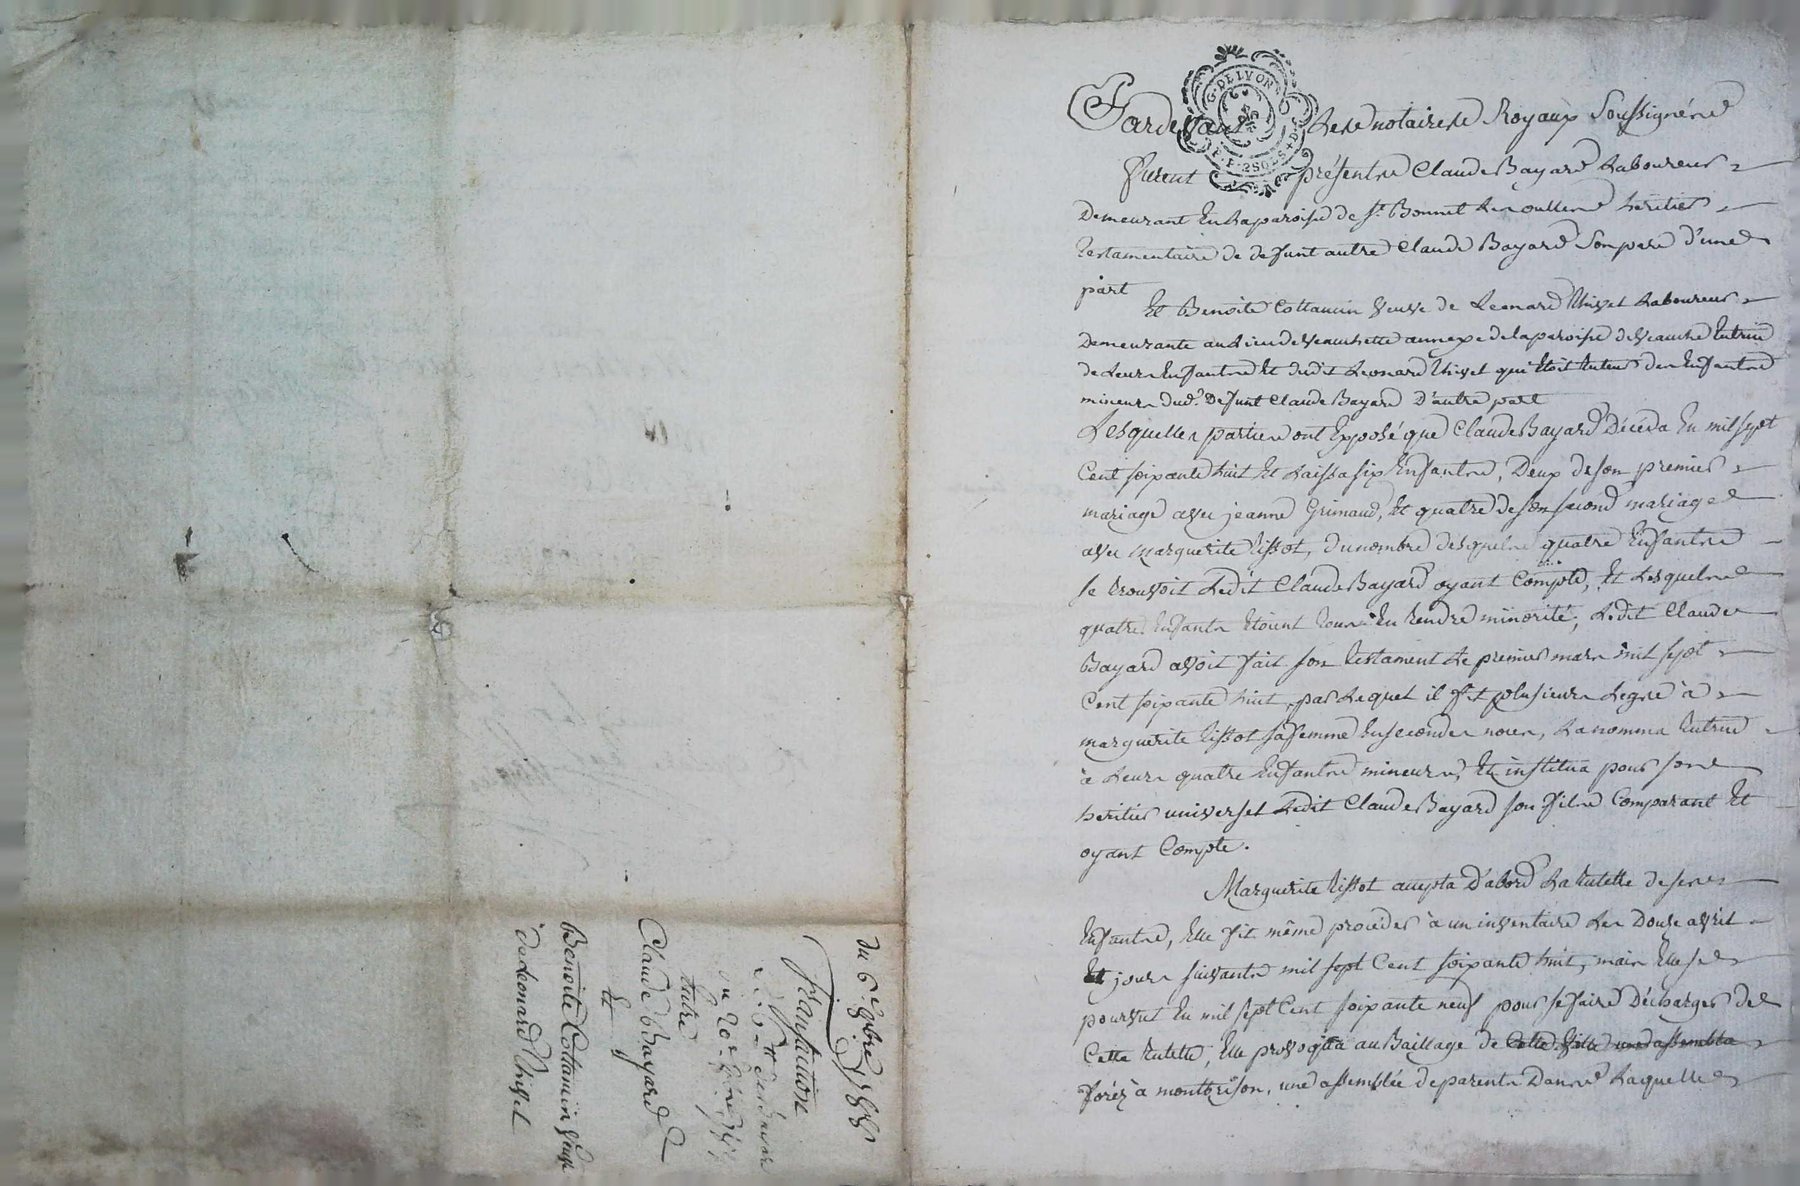 du 6e. 9bre 1788
Transaction
Entre
Claude Bayard
Et
Benoite Cottancin veuve
de Leonard Thivel
G. DE LYON
F. F. 2 SOLS
Pardevant Les notaires Royaux Soussignés
Furent présents Claude Bayard Laboureur
Demeurant En La paroisse de St. Bonnet Les oulles héritier
testamentaire de defunt autre Claude Bayard Son pere d'une
part
Et Benoite Cottancin veuve de Leonard Thivel Laboureur
Demeurante au Lieu de veauchette annexe de la paroisse de veauche tutrice
de Leurs Enfants Et dudit Leonard Thivel qui Etoit tuteur des Enfants
mineurs dud. Defunt Claude Bayard D'autre part
Lesquelles parties ont Exposé que Claude Bayard Déceda En mil sept
Cent soixante huit Et Laissa six Enfants, Deux de son premier
mariage avec jeanne Grimaud, Et quatre de son second mariage
avec Marguerite tissot, du nombre desquels quatre Enfants
se trouvoit Ledit Claude Bayard oyant Compte, Et Lesquels
quatre Enfants Etoient tous En tendre minorité, Ledit Claude
Bayard avoit fait son testament Le premier mars mil sept
Cent soixante huit, par Lequel il fit plusieurs Legs à
marguerite tissot sa femme En secondes noces, La nomma tutrice
à Leurs quatre Enfants mineurs, Et institua pour son
heritier universel Ledit Claude Bayard son fils Comparant Et
oyant Compte.
Marguerite tissot accepta D'abord La tutelle de ses
Enfants, Elle fit même proceder à un inventaire Les Douze avril
Et jours suivants mil sept Cent soixante huit, mais Elle se
pourvut En mil sept Cent soixante neuf pour se faire Décharger de
Cette tutelle, Elle provoqua au Baillage de Cette ville une assemblée
forêz à montbrison, une assemblée de parents Dans Laquelle